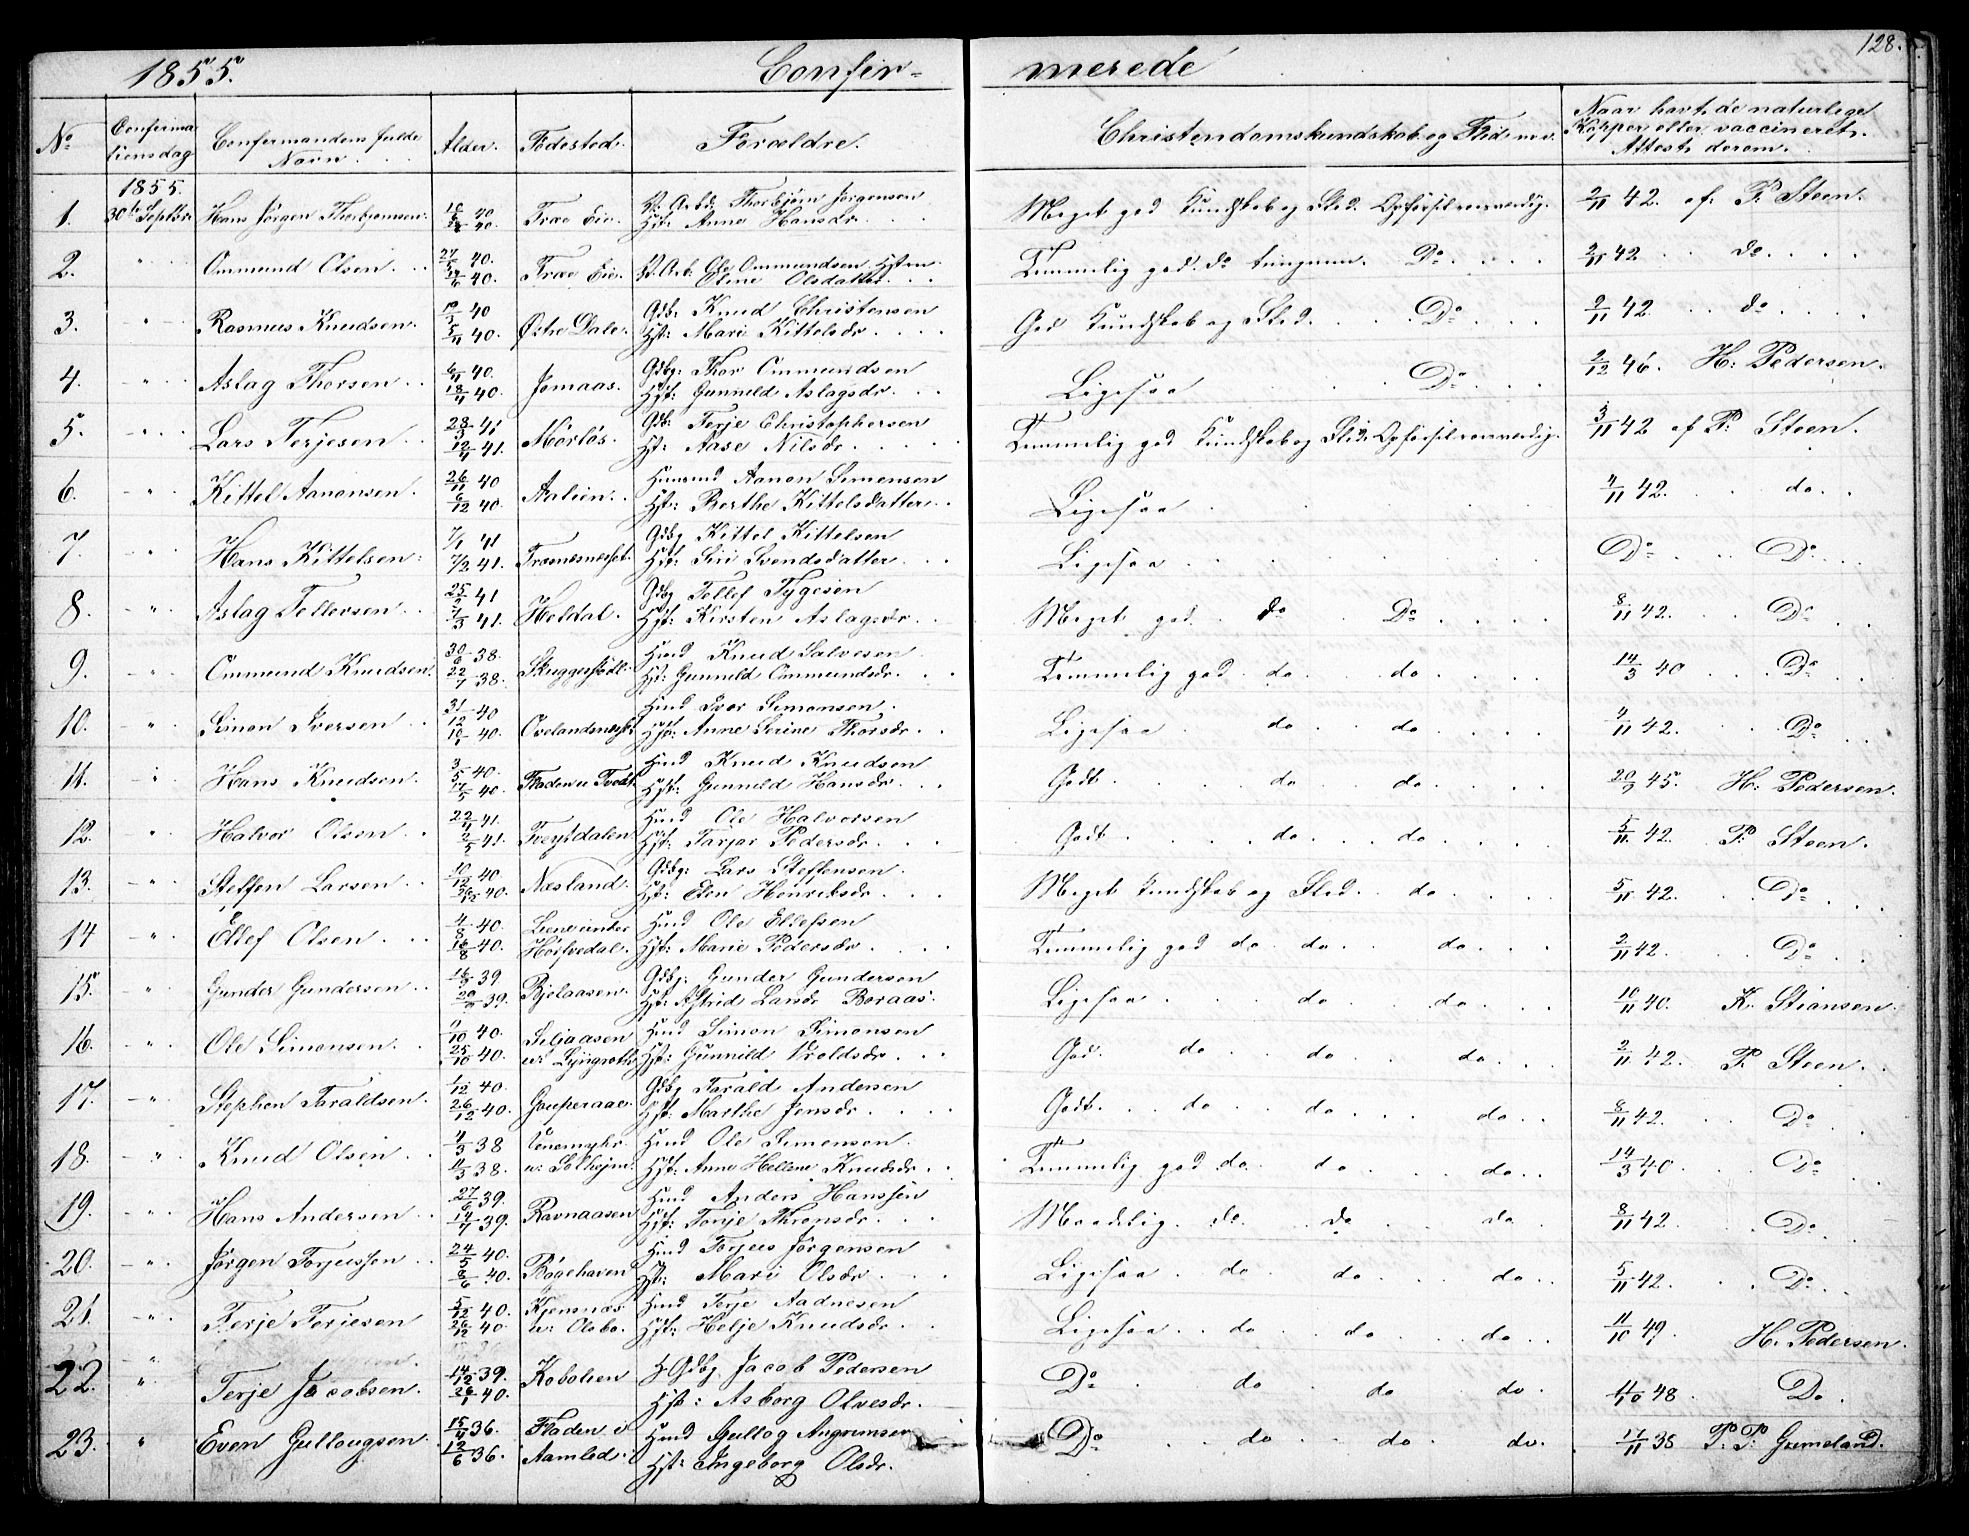 128.
1855. Confir- merede
No Confirma tionsdag Confirmandens fulde Navn. Alder. Fødested. Forældre. Christendomskundskab og Flid m. v. Naar havt de naturlige Kopper eller vaccineret. Attest derom.
1. 1855. 30te Septbr. Hans Jørgen Thorbjørnsen. 40. 40. Træ Eie. Thorbjørn Jørgensen Hst: Anne Hansdr. Meget god Kundskab og Flid. Opførsel roesværdig. 2/11 42. af P. Steen.
2. " Ommund Olsen. 27/5 40. 40. Træ Eie. Ole Ommundsen Hstru Eline Olsdatter. Temmelig god do tungnem. Do. 2/11 42 do.
3. " Rasmus Knudsen. 40 40. Østre Dale. Gdb: Knud Christensen Hst: Mari Kittelsdr. God Kundskab og Flid. Do. 2/11 42. do.
4. " Aslag Thorsen. 40. 18/4 40. Jomaas. Gdbg: Thor Ommundsen Hst: Gunneld Aslagsdr. Ligesaa Do. 2/12 46. H. Pedersen.
5. " Lars Terjesen 23/3 41 12/4 41. Mörfös. Gdb: Terje Christophersen Hst: Aase Nilsdr. Temmelig god Kundskab og Flid. Opførsel roesværdig. 3/11 42 af P. Steen.
6. " Kittel Aanonsen. 26/11 40 6/12 40. Aalien. Huusmd Aanon Simensen Hst: Berthe Kittelsdatter. Ligesaa 4/11 42. do.
7. " Hans Kittelsen. 7/1 41 7/2 41. Trævesnæset. Gdbg Kittel Kittelsen Hst: Siri Svendsdatter. Ligesaa Do. Do.
8. " Aslag Tellevsen. 25/2 41 7/3 41. Heldal. Gdbg Tellef Tygesen Hst: Kirsten Aslagsdr. Meget god. do Do. 8/11 42. Do.
9. " Ommund Knudsen. 30/6 38. 22/7 38. Skuggestödl. Hmd Knud Salvesen Hst: Gunneld Ommundsdr. Temmelig god do. do. 14/3 40 Do.
10. " Simon Iversen. 31/12 40 40. Ovelandsneset Hmd Iver Simonsen. Hst: Anne Serine Thorsdr. Ligesaa do. do. 4/11 42. Do.
11. " Hans Knudsen. 3/5 40. 17/5 40. Fladen u Tvedt. Hmd Knud Knudsen Hst: Gunneld Hansdr. Godt. do. do. 20/9 45. H. Pedersen.
12. " Halvor Olsen. 22/4 41. 2/5 41. Tveitdalen. Hmd Ole Halvorsen Hst: Tarjar Pedersdr. Godt. do. do. 5/11 42. P. Steen.
13. " Steffen Larsen. 10/12 40 26/12 40. Næsland. Gdbg: Lars Steffensen Hst: Elen Henriksdr. Meget Kundskab og Flid. do. 5/11 42. Do.
14 " Ellef Olsen. 4/8 40. 16/8 40. Liene under Hörsvedal. Hmd Ole Ellefsen Hst: Marie Pedersdr. Temmelig god do. do. do. 2/11 42. Do.
15. " Gunder Gundersen 39 39. Bjelaasen. Gdbg. Gunder Gundersen Hst: Astrid Larsdr Boraas. Ligesaa do. do. 10/11 40. K. Stiansen.
16. " Ole Simonsen. 11/10 40. 25/10 40. Seljaasen u: Lyngroth. Hmd Simon Simonsen Hst: Gunnild Vroldsdr. God. do. do. do. 2/11 42. P. Steen.
17. " Stephen Taraldsen. 1/12 40. 26/12 40. Gauperaae. Gdbg Tarald Andersen Hst: Marthe Jensdr. Godt. do. do. do. 8/11 42. Do.
18. " Knud Olsen. 4/3 38 11/3 38. Venemyhr. u: Solhejm. Hmd Ole Simonsen. Hst: Anne Hellene Knudsdr. Temmelig god do. do. do. 14/3 40. Do.
19. " Hans Andersen. 27/6 39. 14/7 39. Ravnaasen Hmd Anders Hanssen Hst: Tonje Thronsdr. Maadelig. do. do do 8/11 42. Do
20. " Jørgen Torjussen 24/5 40. 8/6 40. Bøgehaven Hmd Torjus Jörgensen Hst: Mari Olsdr. Ligesaa. do. do. do. 5/11 42. Do.
21. " Terje Terjesen 5/12 40. 26/12 40. Kjennæs u: Olsbo. Hmd Terje Aadnesen Hst: Helje Knudsdr. Ligesaa. do. do. do. 11/10 49. H. Pedersen.
22. " Terje Jacobsen. 14/12 39. 26/1 40. Kobolien Gdbg. Jacob Pedersen Hst: Asborg Olvesdr. Do. do. do. do. 11/10 48. Do.
23. " Even Gullougsen 15/4 36. 12/6 36. Fladen u Aamlid. Hmd Gullog Angrimsen Hst: Ingeborg Olsdr. Do. do do. do. 17/11 38 P. P. Grimeland.